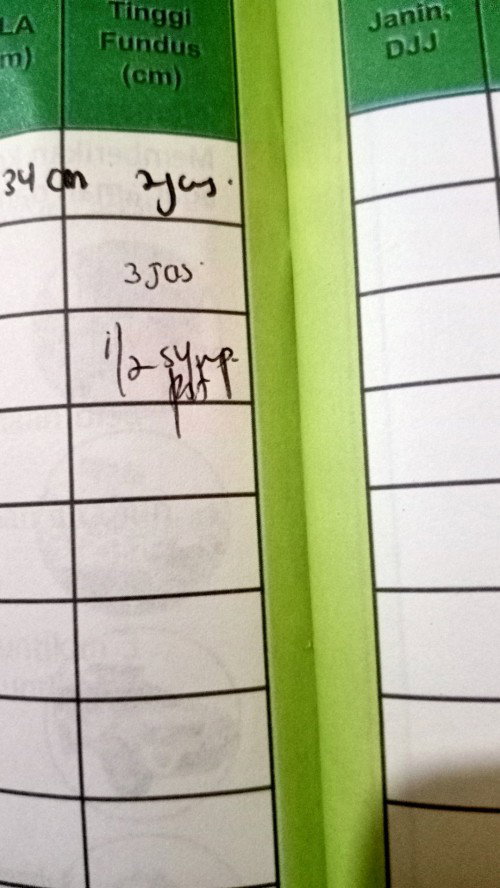 LA
m)
Tinggi
Fundus
(cm)
Janin,
DJJ
34 cm
2 jas.
3 Jas
1/2 symp
pst